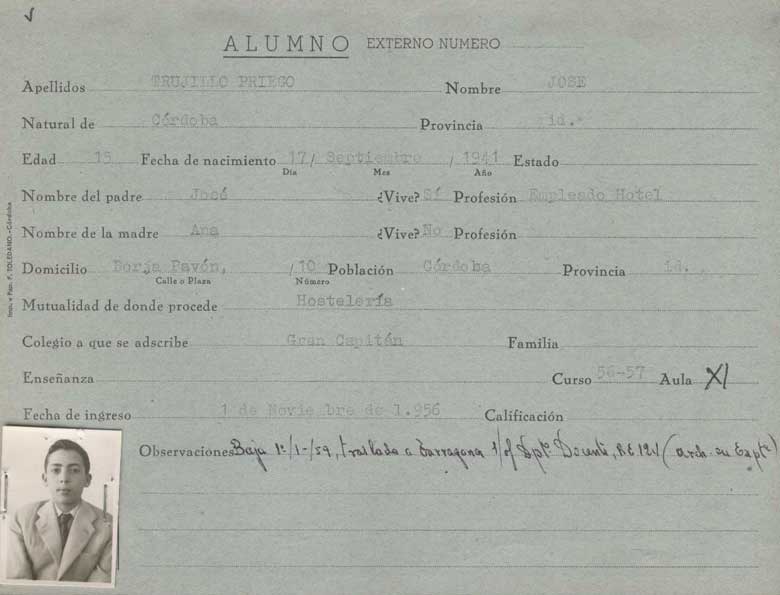 ALUMNO EXTERNO NUMERO
Apellidos TRUJILLO PRIEGO Nombre JOSE
Natural de Córdoba Provincia id.
Edad 15 Fecha de nacimiento 17/ Septiembre / 1941 Estado
Día Mes Año
Nombre del padre José ¿Vive? Sí Profesión Empleado Hotel
Nombre de la madre Ana ¿Vive? No Profesión
Domicilio Borja Pavón, /10 Población Córdoba Provincia id.
Calle o Plaza Número
Mutualidad de donde procede Hostelería
Colegio a que se adscribe Gran Capitán Familia
Enseñanza Curso 56-57 Aula XI
Fecha de ingreso 1 de Novie bre de 1.956 Calificación
Observaciones Baja 1º/1-/59, traslado a Tarragona
F. TOLEDANO.-Córdoba